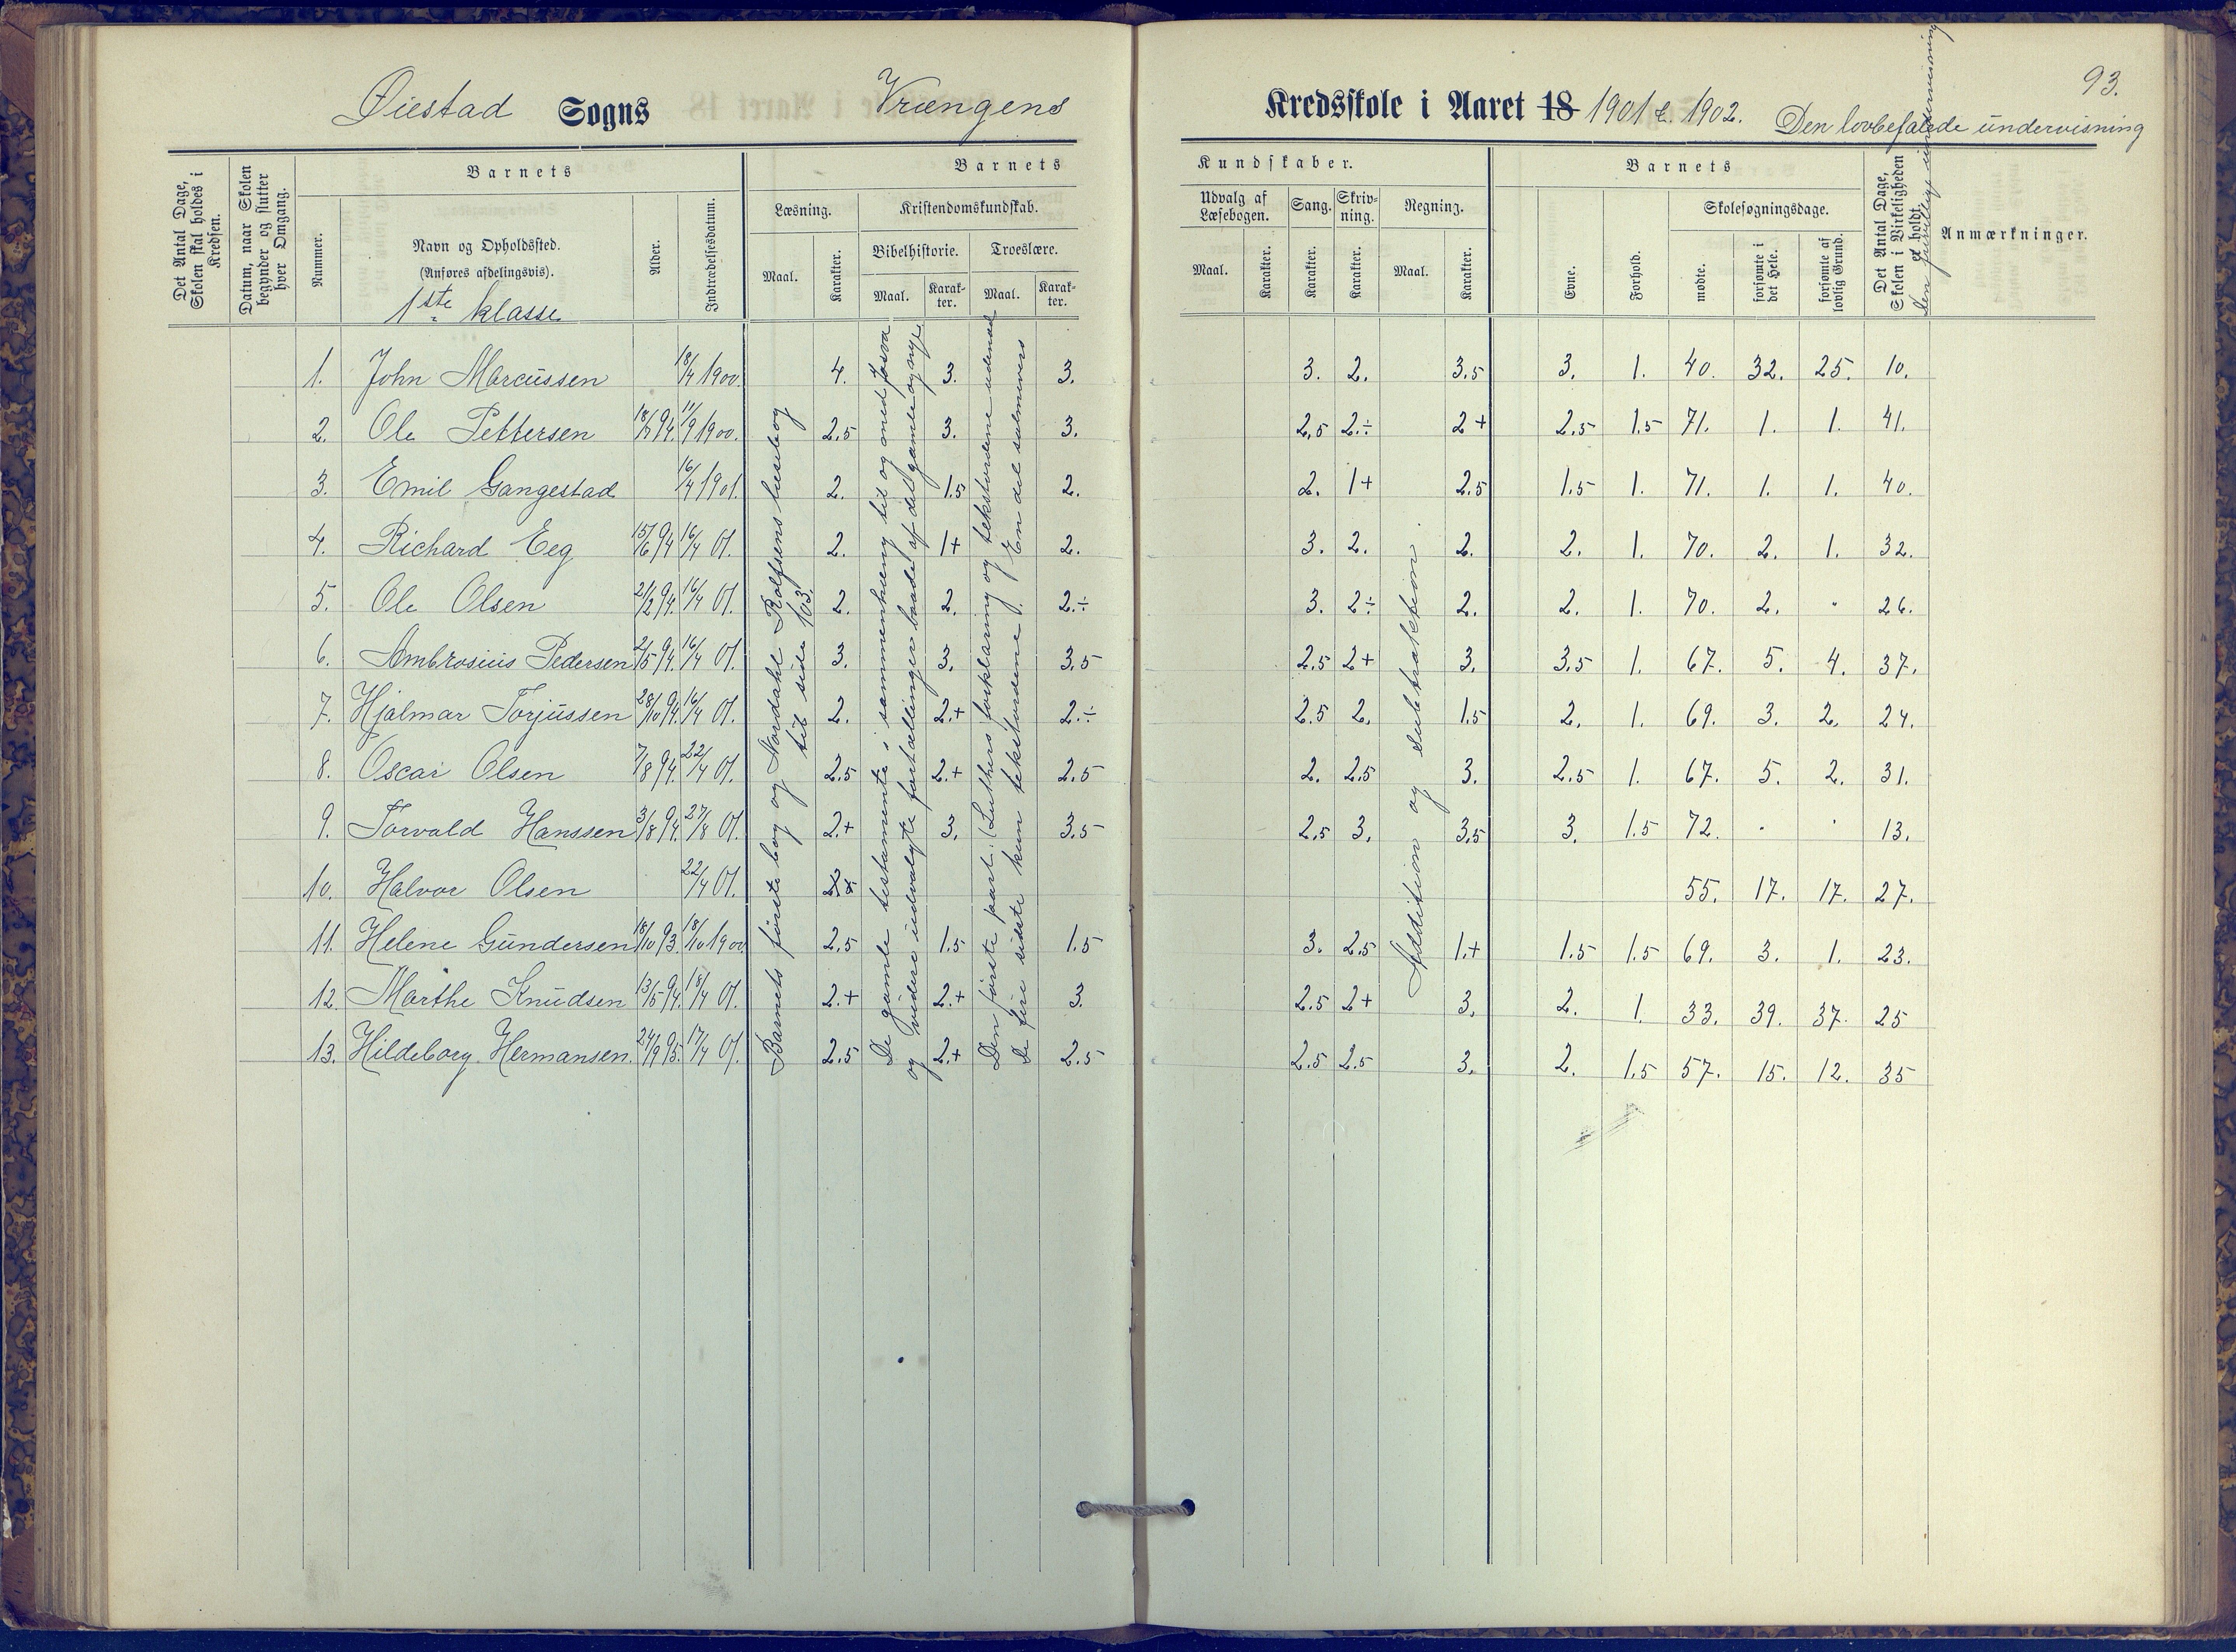 93.
Øiestad Sogns Vrængens Kredsskole i Aaret 18 1901 & 1902. Den lovbefalede undervisning
Det Antal Dage, Skolen skal holdes i Kredsen.
Datum, naar Skolen begynder og slutter hver Omgang.
Barnets
Nummer.
Navn og Opholdssted.
(Anføres afdelingsvis).
1ste klasse
Alder.
Indtrædelsesdatum.
Barnets Kundskaber.
Læsning.
Maal.
Karakter.
Kristendomskundskab.
Bibelhistorie.
Maal.
Karakter.
Troeslære.
Maal.
Karakter.
Udvalg af Læsebogen.
Maal.
Karakter.
Sang.
Karakter.
Skrivning.
Karakter.
Regning.
Maal.
Karakter.
Barnets
Evne.
Forhold.
Skolesøgningsdage.
mødte.
forsømte i det Hele.
forsømte af lovlig Grund.
Det Antal Dage, Skolen i Virkeligheden er holdt.
Den frivillige undervisning
Anmærkninger.
1. John Marcussen 18/4 1900. 4. 3. 3. 3. 2. 3.5 3. 1. 40. 32. 25. 10.
2. Ole Pettersen 94. 11/9 1900. 2.5 3. 3. 2,5 2.÷ 2+ 2.5 1.5 71. 1. 1. 41.
3. Emil Gangestad 16/4 1901. 2. 1.5 2. 2. 1+ 2.5 1.5 1. 71. 1. 1. 40.
4. Richard Eeg 15/6 94 16/4 01. 2. 1+ 2. 3. 2. 2. 2. 1. 70. 2. 1. 32.
5. Ole Olsen 21/2 94. 16/4 01. 2. 2. 2.÷ 3. 2÷ 2. 2. 1. 70. 2. " 26.
6. Ambrosius Pedersen 2/5 94. 16/4 01. 3. 3. 3.5 2.5 2+ 3. 3.5 1. 67. 5. 4. 37.
7. Hjalmar Torjussen 28/10 94. 16/4 01. 2. 2.+ 2.÷ 2.5 2. 1.5 2. 1. 69. 3. 2. 24.
8. Oscar Olsen 7/8 94. 22/4 01. 2.5 2.+ 2.5 2. 2.5 3. 2.5 1. 67. 5. 2. 31.
9. Torvald Hanssen 3/8 94. 27/8 01. 2.+ 3. 3.5 2.5 3. 3.5 3. 1.5 72. . . 13.
10. Halvor Olsen 22/4 01. 55. 17. 17. 27.
11. Helene Gundersen 18/10 93. 18/10 1900 2.5 1.5 1.5 3. 2.5 1.+ 1.5 1.5 69. 3. 1. 23.
12. Marthe Knudsen 13/5 94. 18/4 01. 2.+ 2.+ 3. 2.5 2+ 3. 2. 1. 33. 39. 37. 25
13. Hildeborg Hermansen. 24/9 93. 17/4 01. 2.5 2.+ 2.5 2.5 2.5 3. 2. 1.5 57. 15. 12. 35
Barnets første bog og Nordahl Rolfsens læsebog
til side 103.
De gamle testamente i sammenhæng til og med Josva
og videre udvalgte fortællinger baade af det gamle og nye
Den første part. (Luthers forklaring og tekstordene udenad
De fire sidste kun tekstordene). En del salmevers
Addition og subtraktion